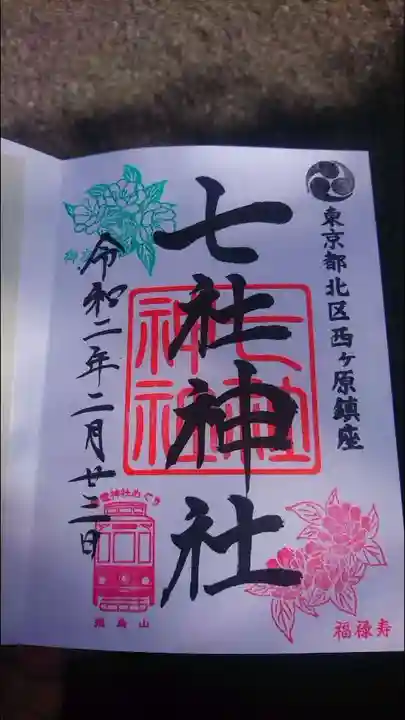 東京都北区西ヶ原鎮座
七社神社
七社
神社
令和二年二月廿三日
神社めぐり
飛鳥山
福禄寿